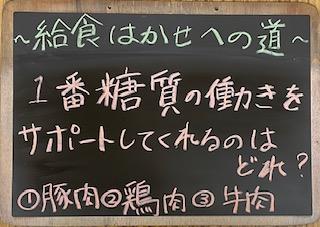 ~給食はかせへの道~
1番糖質の働きを
サポートしてくれるのは
どれ?
①豚肉②鶏肉③牛肉